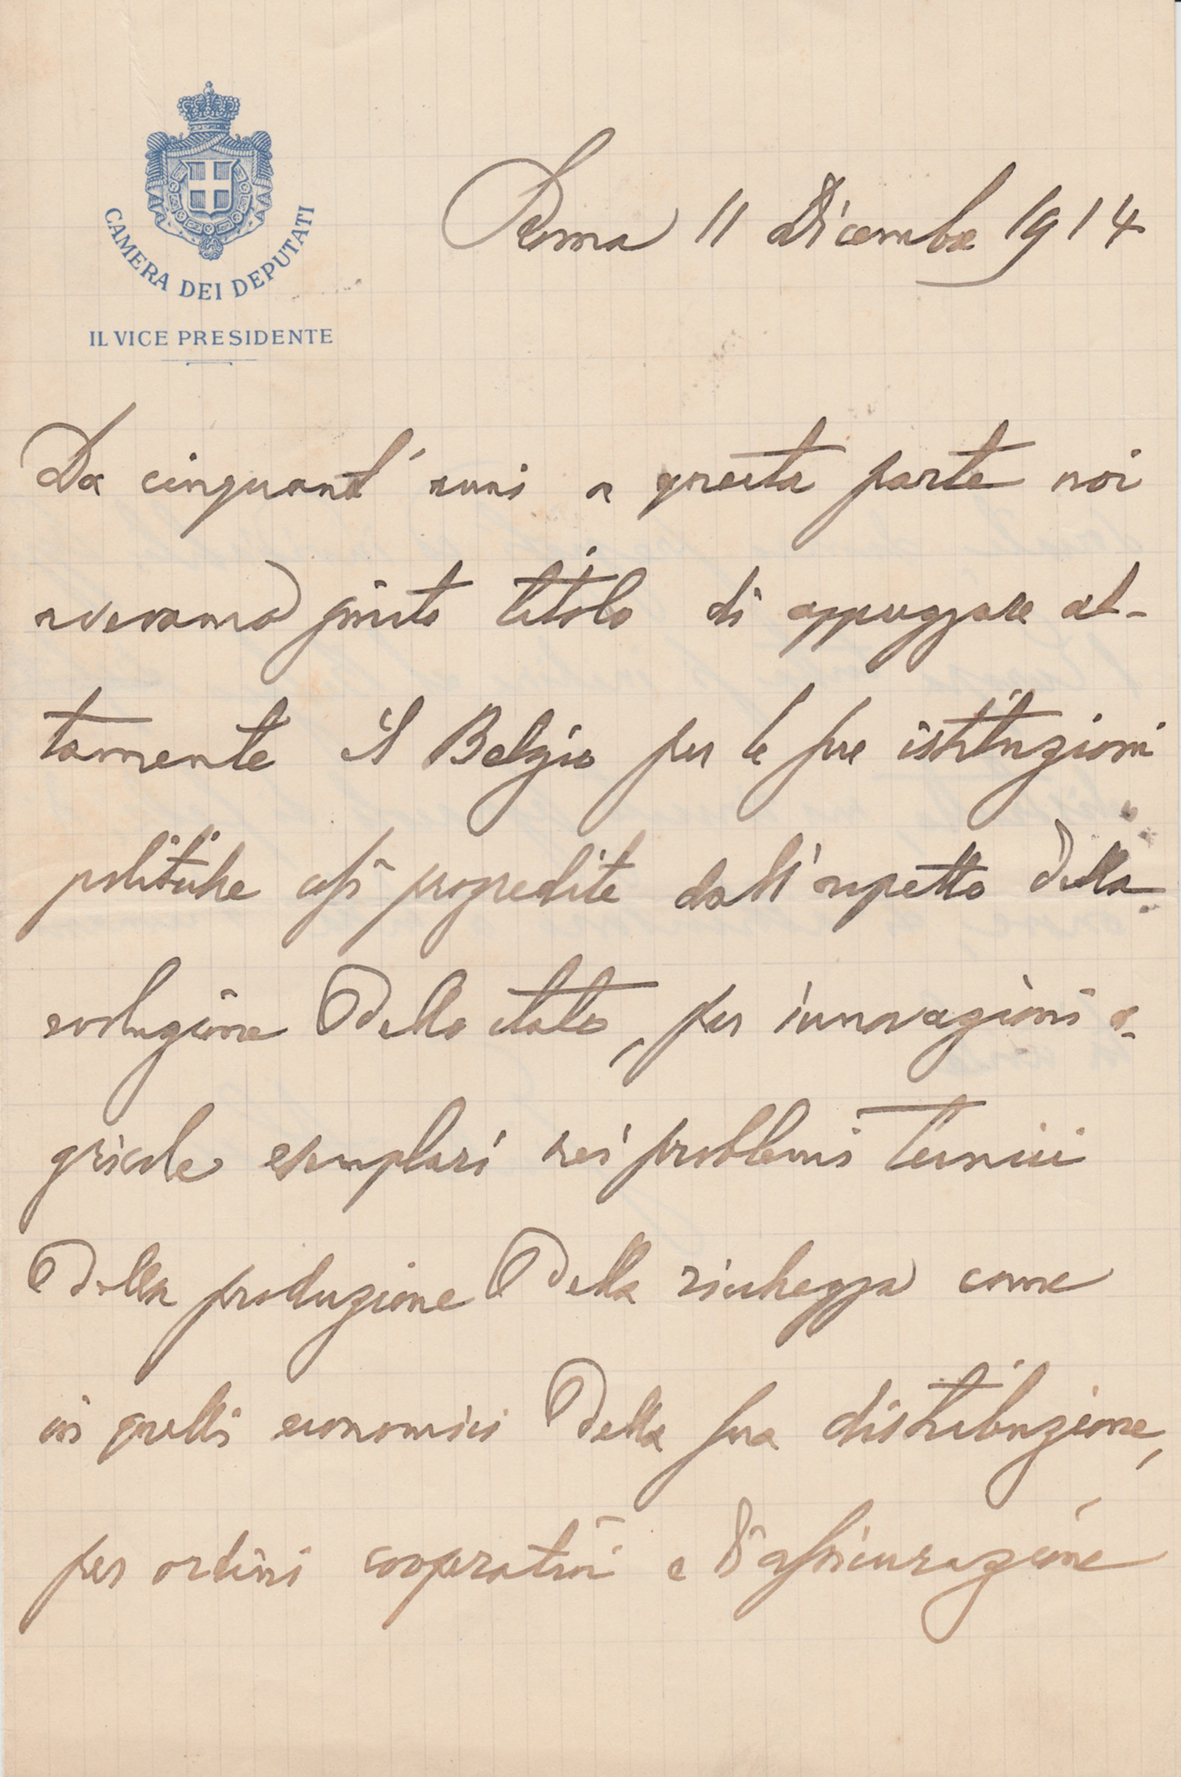 CAMERA DEI DEPUTATI
IL VICE PRESIDENTE
Roma 11 Dicembre 1914
Da cinquant'anni a questa parte noi
avevamo giusto titolo di apprezzare al-
tamente il Belgio per le sue istituzioni
politiche così progredite dall'aspetto della
evoluzione dello stato, per innovazioni a-
gricole esemplari nei problemi tecnici
della produzione della ricchezza come
in quelli economici della sua distribuzione,
per ordini cooperativi e di assicurazione